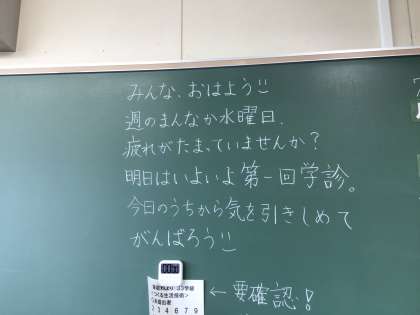 みんな、おはよう
週のまんなか水曜日、
疲れがたまっていませんか?
明日はいよいよ第一回学診。
今日のうちから気を引きしめて
がんばろう
←要確認!
2 3 4 6 7 9